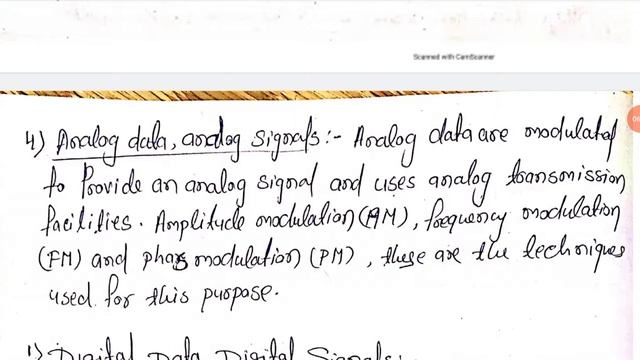 Scanned with CamScanner
4) Analog data, analog signals :- Analog data are modulated
to Provide an analog signal and uses analog transmission
facilities. Amplitude modulation (AM), frequency modulation
(FM) and phas modulation (PM), these are the techniques
used for this purpose.
1) Digital Data Digital Signals: